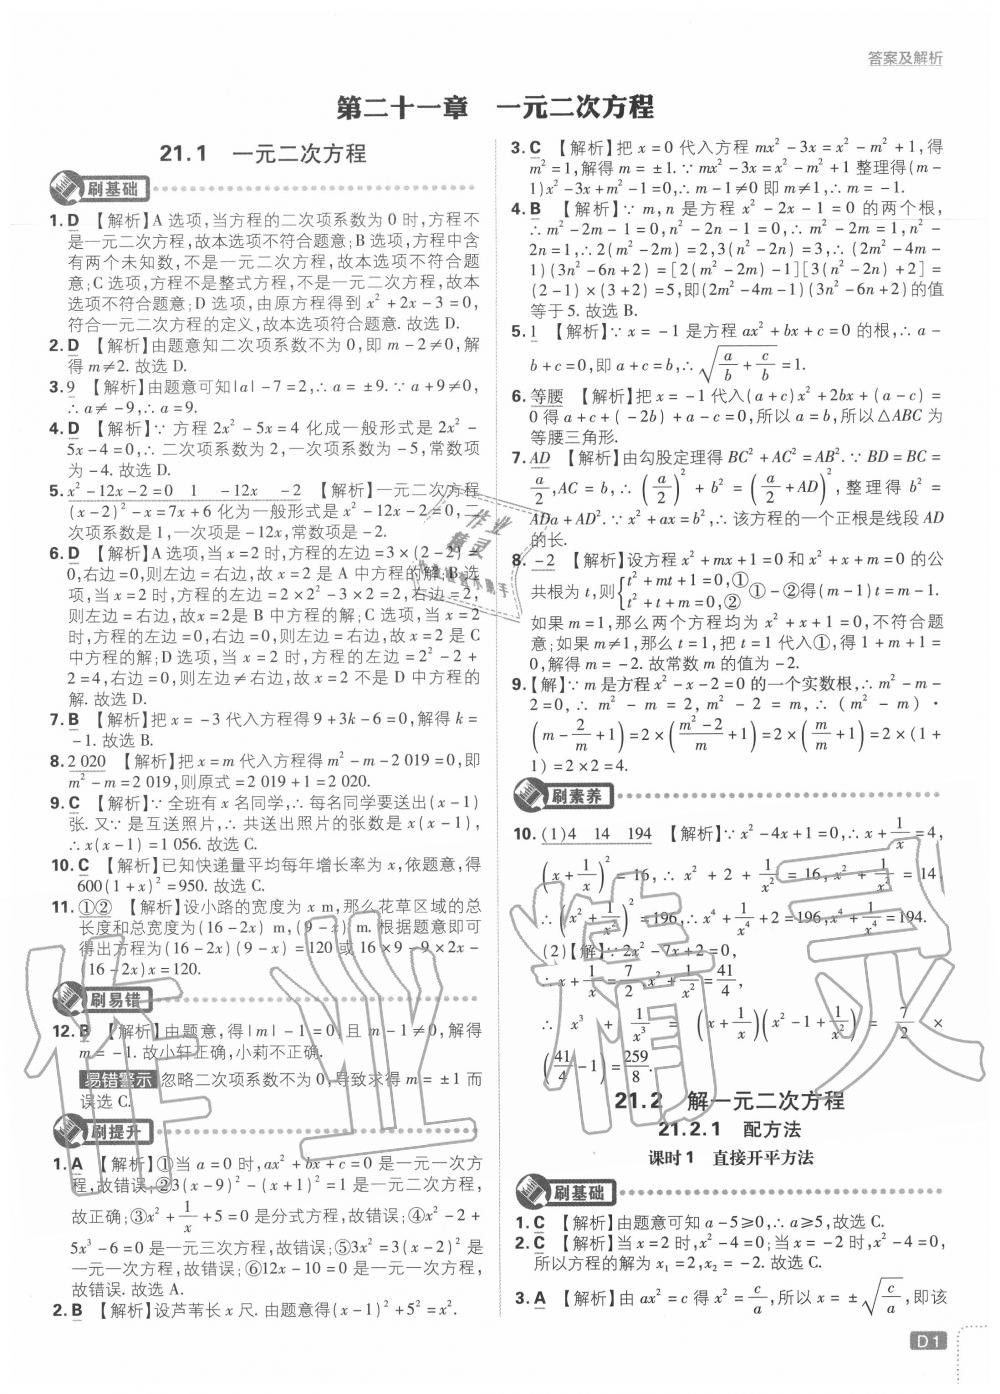 答案及解析
第二十一章 一元二次方程
21.1 一元二次方程
刷基础
1. D 【解析】A 选项,当方程的二次项系数为 0 时,方程不
是一元二次方程,故本选项不符合题意;B 选项,方程中含
有两个未知数,不是一元二次方程,故本选项不符合题
意;C 选项,方程不是整式方程,不是一元二次方程,故本
选项不符合题意;D 选项,由原方程得到 x²+2x-3=0,
符合一元二次方程的定义,故本选项符合题意. 故选 D.
2. D 【解析】由题意知二次项系数不为 0,即 m-2≠0,解
得 m≠2. 故选 D.
3. 9 【解析】由题意可知|a|-7=2,∴a=±9.∵a+9≠0,
∴a≠-9,∴a=9.
4. D 【解析】∵方程 2x²-5x=4 化成一般形式是 2x²-
5x-4=0,∴二次项系数为 2,一次项系数为 -5,常数项
为 -4. 故选 D.
5. x²-12x-2=0 1 -12x -2 【解析】一元二次方程
(x-2)²-x=7x+6 化为一般形式是 x²-12x-2=0,二
次项系数是 1,一次项是 -12x,常数项是 -2.
6. D 【解析】A 选项,当 x=2 时,方程的左边=3×(2-2)=
0,右边=0,则左边=右边,故 x=2 是 A 中方程的解;B 选
项,当 x=2 时,方程的左边=2×2²-3×2=2,右边=2,
则左边=右边,故 x=2 是 B 中方程的解;C 选项,当 x=2
时,方程的左边=0,右边=0,则左边=右边,故 x=2 是 C
中方程的解;D 选项,当 x=2 时,方程的左边=2²-2+
2=4,右边=0,则左边≠右边,故 x=2 不是 D 中方程的
解. 故选 D.
7. B 【解析】把 x=-3 代入方程得 9+3k-6=0,解得 k=
-1. 故选 B.
8. 2 020 【解析】把 x=m 代入方程得 m²-m-2 019=0,即
m²-m=2 019,则原式=2 019+1=2 020.
9. C 【解析】∵全班有 x 名同学,∴每名同学要送出(x-1)
张. 又∵是互送照片,∴共送出照片的张数是 x(x-1),
∴x(x-1)=1 056. 故选 C.
10. C 【解析】已知快递量平均每年增长率为 x,依题意,得
600(1+x)²=950. 故选 C.
11. ①② 【解析】设小路的宽度为 x m,那么花草区域的总
长度和总宽度为(16-2x) m,(9-x) m. 根据题意即可
得出方程为(16-2x)(9-x)=120 或 16×9-9×2x-
(16-2x)x=120.
刷易错
12. B 【解析】由题意,得|m|-1=0,且 m-1≠0,解得
m=-1. 故小轩正确,小莉不正确.
易错警示 忽略二次项系数不为 0,导致求得 m=±1 而
误选 C.
刷提升
1. A 【解析】①当 a=0 时,ax²+bx+c=0 是一元一次方
程,故错误;②3(x-9)²-(x+1)²=1 是一元二次方程,
故正确;③x²+1/x+5=0 是分式方程,故错误;④x²-2+
5x³-6=0 是一元三次方程,故错误;⑤3x²=3(x-2)² 是
一元一次方程,故错误;⑥12x-10=0 是一元一次方程,
故错误. 故选 A.
2. B 【解析】设芦苇长 x 尺. 由题意得(x-1)²+5²=x².
3. C 【解析】把 x=0 代入方程 mx²-3x=x²-m²+1,得
m²=1,解得 m=±1.∵mx²-3x=x²-m²+1 整理得(m-
1)x²-3x+m²-1=0,∴m-1≠0 即 m≠1,∴m=-1.
4. B 【解析】∵m,n 是方程 x²-2x-1=0 的两个根,
∴m²-2m-1=0,n²-2n-1=0,∴m²-2m=1,n²-
2n=1,∴2(m²-2m)=2,3(n²-2n)=3,∴(2m²-4m-
1)(3n²-6n+2)=[2(m²-2m)-1][3(n²-2n)+2]=
(2-1)×(3+2)=5,即(2m²-4m-1)(3n²-6n+2)的值
等于 5. 故选 B.
5. 1 【解析】∵x=-1 是方程 ax²+bx+c=0 的根,∴a-
b+c=0,即 a+c=b,∴√(a/b+c/b)=1.
6. 等腰 【解析】把 x=-1 代入(a+c)x²+2bx+(a-c)=
0 得 a+c+(-2b)+a-c=0,所以 a=b,所以△ABC 为
等腰三角形.
7. AD 【解析】由勾股定理得 BC²+AC²=AB².∵BD=BC=
a/2,AC=b,∴(a/2)²+b²=(a/2+AD)²,整理得 b²=
ADa+AD².∵x²+ax=b²,∴该方程的一个正根是线段 AD
的长.
8. -2 【解析】设方程 x²+mx+1=0 和 x²+x+m=0 的公
共根为 t,则{t²+mt+1=0,① t²+t+m=0,②①-②得(m-1)t=m-1.
如果 m=1,那么两个方程均为 x²+x+1=0,不符合题
意;如果 m≠1,那么 t=1,把 t=1 代入①,得 1+m+1=
0,解得 m=-2. 故常数 m 的值为 -2.
9. 【解】∵m 是方程 x²-x-2=0 的一个实数根,∴m²-m-
2=0,∴m²-m=2,m²-2=m,∴(m²-m)·
(m-2/m+1)=2×((m²-2)/m+1)=2×(m/m+1)=2×(1+
1)=2×2=4.
刷素养
10. (1)4 14 194 【解析】∵x²-4x+1=0,∴x+1/x=4,
(x+1/x)²=16,∴x²+2+1/x²=16,x²+1/x²=14.
∴(x²+1/x²)²=196,∴x⁴+1/x⁴+2=196,x⁴+1/x⁴=194.
(2)【解】∵2x²-7x+2=0,
∴x+1/x=7/2,x²+1/x²=41/4,
∴x³+1/x³=(x+1/x)(x²-1+1/x²)=7/2×
(41/4-1)=259/8.
21.2 解一元二次方程
21.2.1 配方法
课时1 直接开平方法
刷基础
1. C 【解析】由题意可知 a-5≥0,∴a≥5,故选 C.
2. C 【解析】当 x=2 时,x²-4=0;当 x=-2 时,x²-4=0,
所以方程的解为 x₁=2,x₂=-2. 故选 C.
3. A 【解析】由 ax²=c 得 x²=c/a,所以 x=±√(c/a),即该
D1
作业
精灵
作业精灵